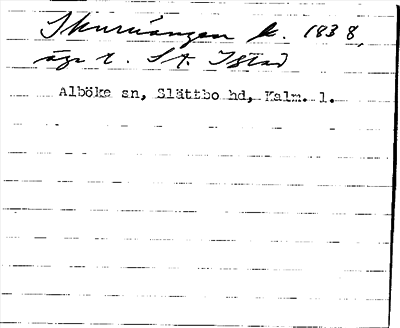 Skuruängen k. 1838,
äga t. St. Istad
Alböke sn, Slättbo hd, Kalm. l.